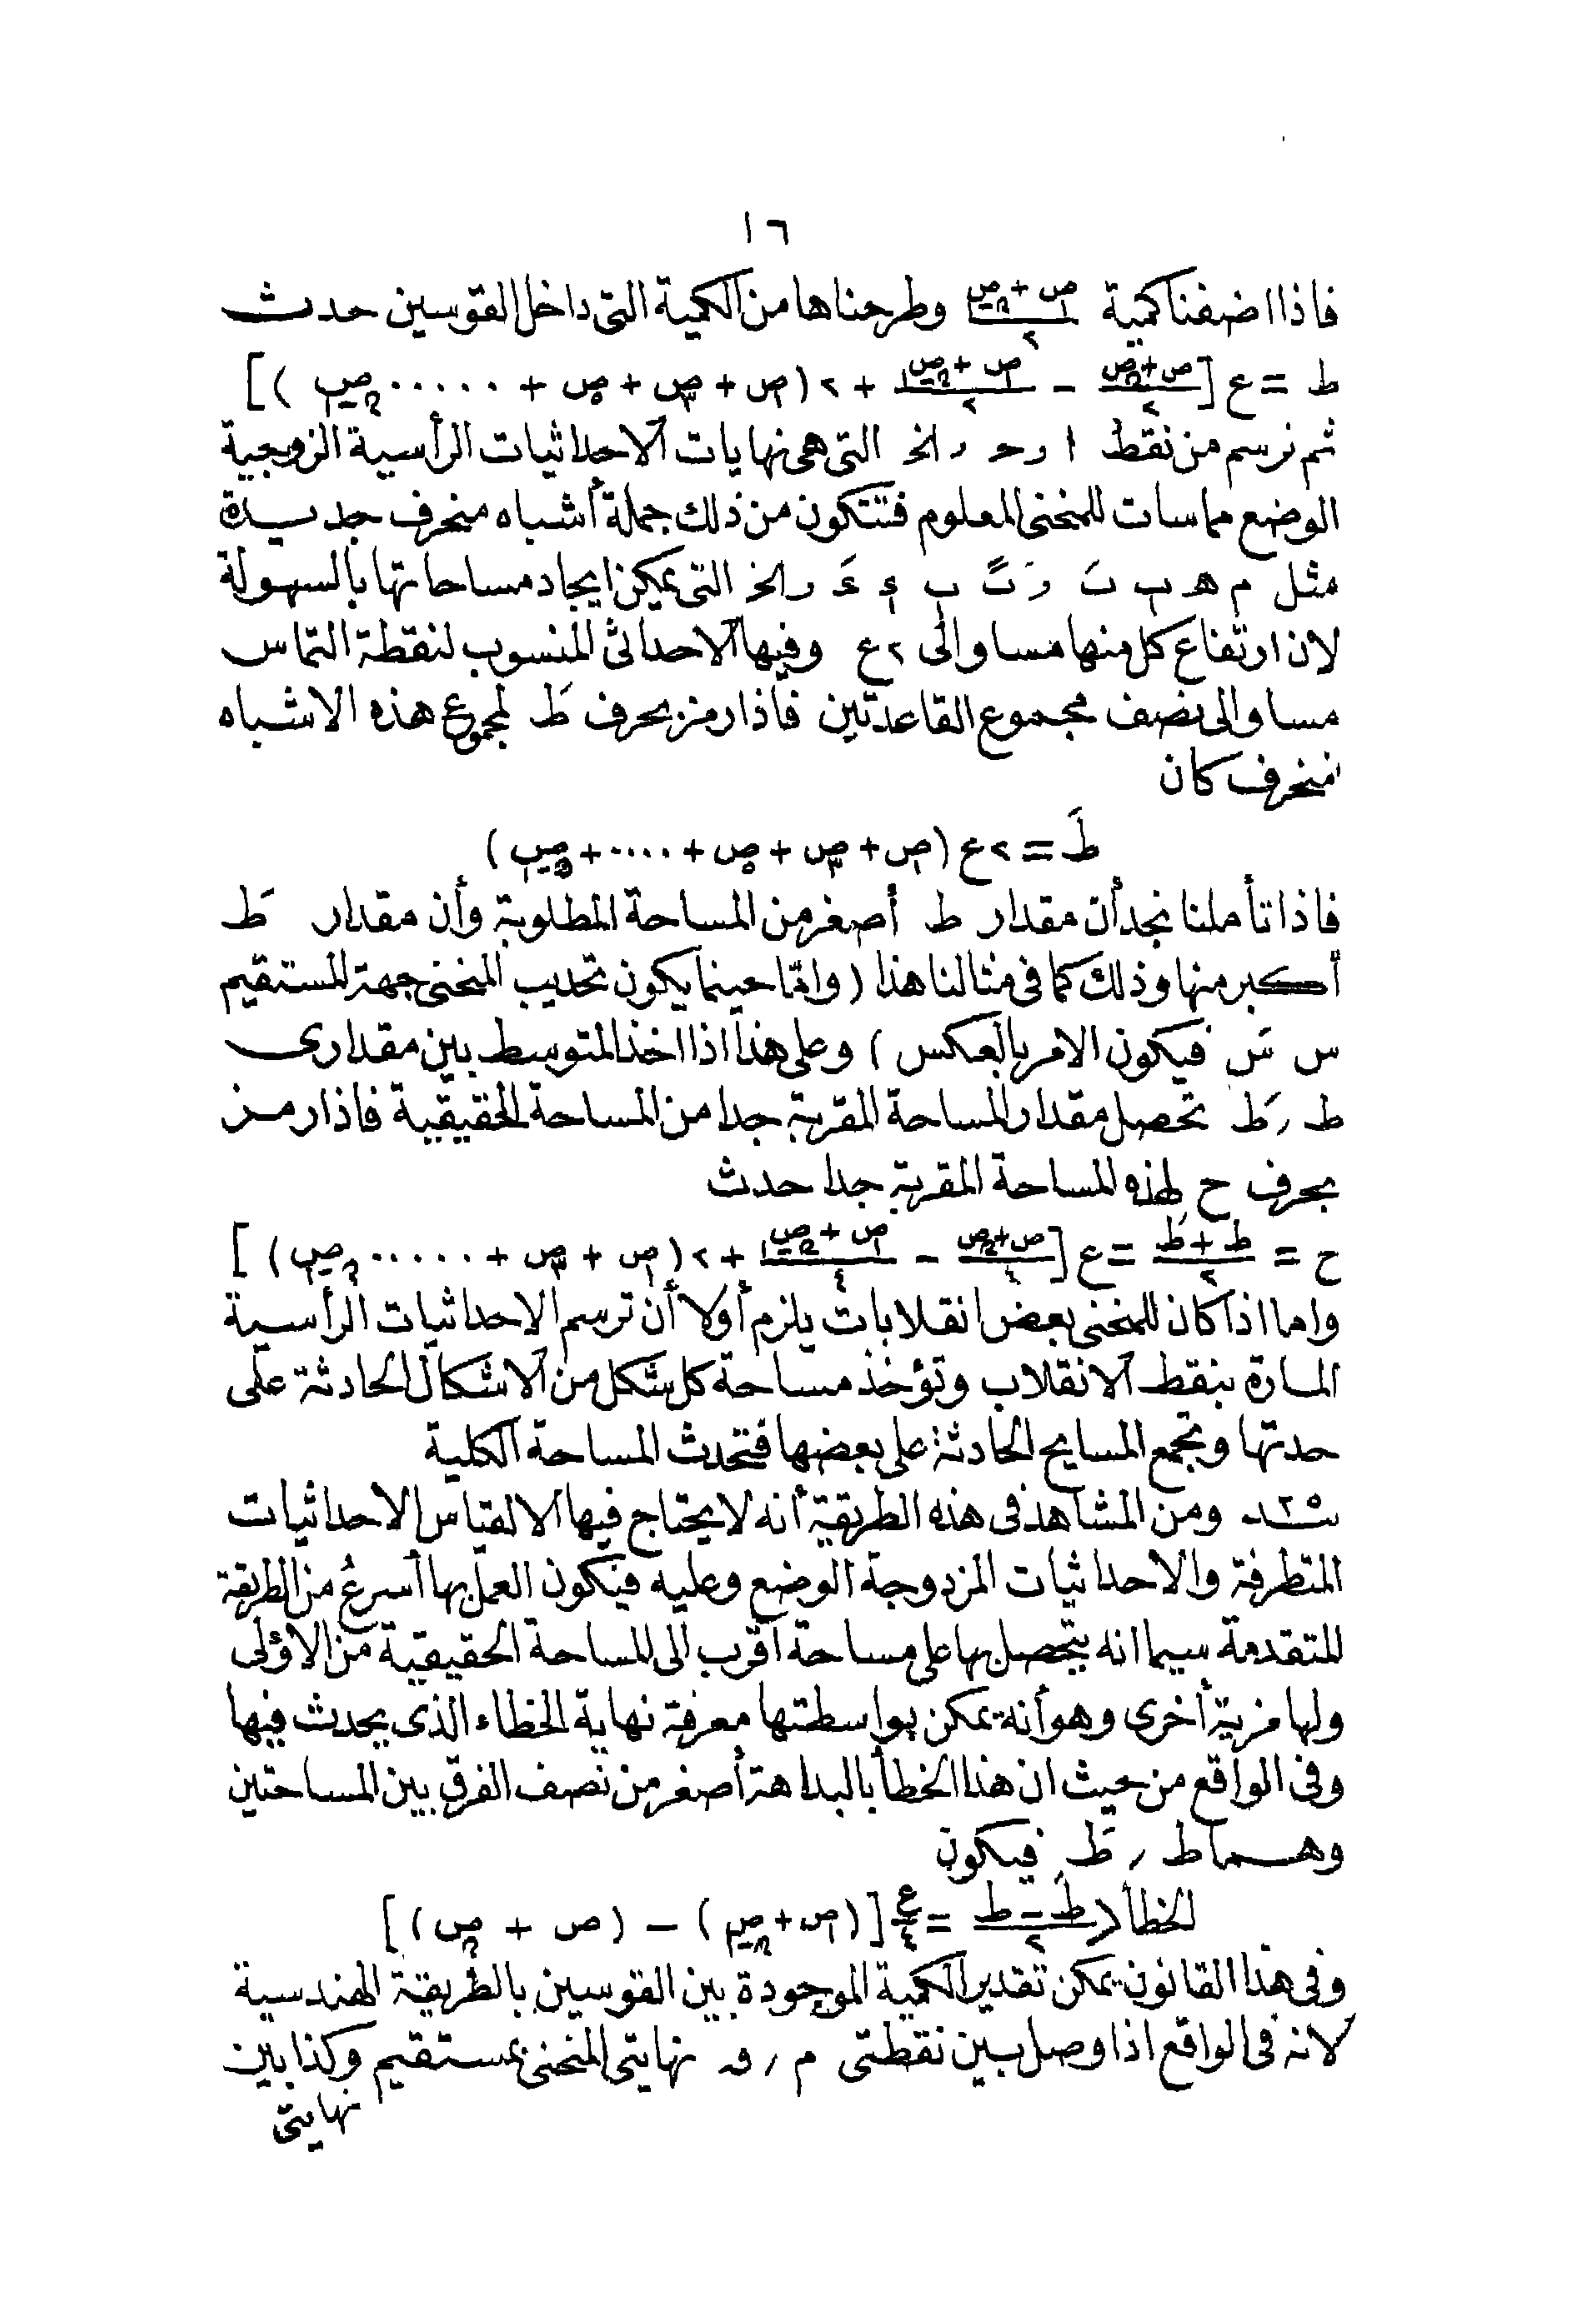 ١٦
فاذا اضفنا كمية (ص١ + ص٢ن-١)/٢ وطرحناها من الكمية التى داخل القوسين حدث
ط = ع [(ص + ص٢ن)/٢ - (ص١ + ص٢ن-١)/٢ + ٢ (ص١ + ص٣ + ص٥ + ..... ص٢ن-١)]
ثم نرسم من نقط ا ر حـ ر الخ التى هى نهايات الاحداثيات الرأسية الزوجية
الوضع مماسات للمنحنى المعلوم فتتكون من ذلك جملة أشباه منحرف جديدة
مثل م هـ ب ر الخ التى يمكن ايجاد مساحاتها بالسهولة
لان ارتفاع كل منها مساو الى ٢ع وفيها الاحداثى المنسوب لنقطة التماس
مساو الى نصف مجموع القاعدتين فاذا رمز بحرف طَ لمجموع هذه الاشباه
منحرف كان
طَ = ٢ع (ص١ + ص٣ + ص٥ + .... + ص٢ن-١)
فاذا تأملنا نجد أن مقدار ط أصغر من المساحة المطلوبة وأن مقدار طَ
أكبر منها وذلك كما فى مثالنا هذا (وامّا حينما يكون تحديب المنحنى جهة المستقيم
س سَ فيكون الامر بالعكس) وعلى هذا اذا اخذ المتوسط بين مقدارى
ط ر طَ تحصل مقدار المساحة المقربة جدا من المساحة الحقيقية فاذا رمز
بحرف ح لهذه المساحة المقربة جدا حدث
ح = (ط + طَ)/٢ = ع [(ص + ص٢ن)/٤ - (ص١ + ص٢ن-١)/٤ + ٢ (ص١ + ص٣ + ..... ص٢ن-١)]
واما اذا كان للمنحنى بعض انقلابات يلزم أولا أن ترسم الاحداثيات الرأسية
المارة بنقط الانقلاب وتؤخذ مساحة كل شكل من الاشكال الحادثة على
حدتها وتجمع المسايح الحادثة على بعضها فتحدث المساحة الكلية
ومن المشاهد فى هذه الطريقة أنه لا يحتاج فيها الا لقياس الاحداثيات
المتطرفة والاحداثيات المزدوجة الوضع وعليه فيكون العمل بها أسرع من الطريقة
المتقدمة سيما انه يتحصل بها على مساحة أقرب الى المساحة الحقيقية من الاؤلى
ولها مزية أخرى وهو أنه يمكن بواسطتها معرفة نهاية الخطاء الذى يحدث فيها
وفى الواقع من حيث ان هذا الخطأ بالبداهة أصغر من نصف الفرق بين المساحتين
وهما ط ر طَ فيكون
الخطأ > (طَ - ط)/٢ = ع/٤ [(ص١ + ص٢ن-١) - (ص + ص٢ن)]
وفى هذا القانون يمكن تقدير الكمية الموجودة بين القوسين بالطريقة الهندسية
لانه فى الواقع اذا وصل بين نقطتى م ر و نهايتى المنحنى بمستقيم وكذا بين
نهايتى